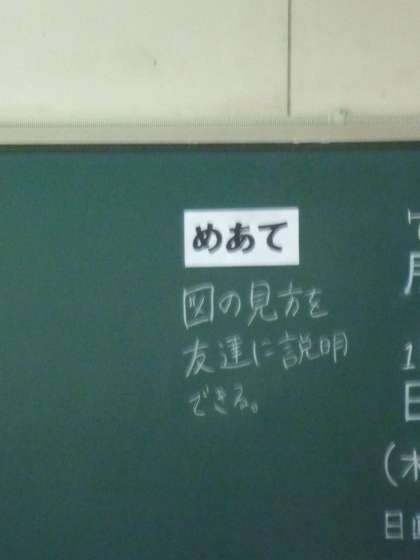 めあて
図の見方を
友達に説明
できる。
月
1
日
(木
日直